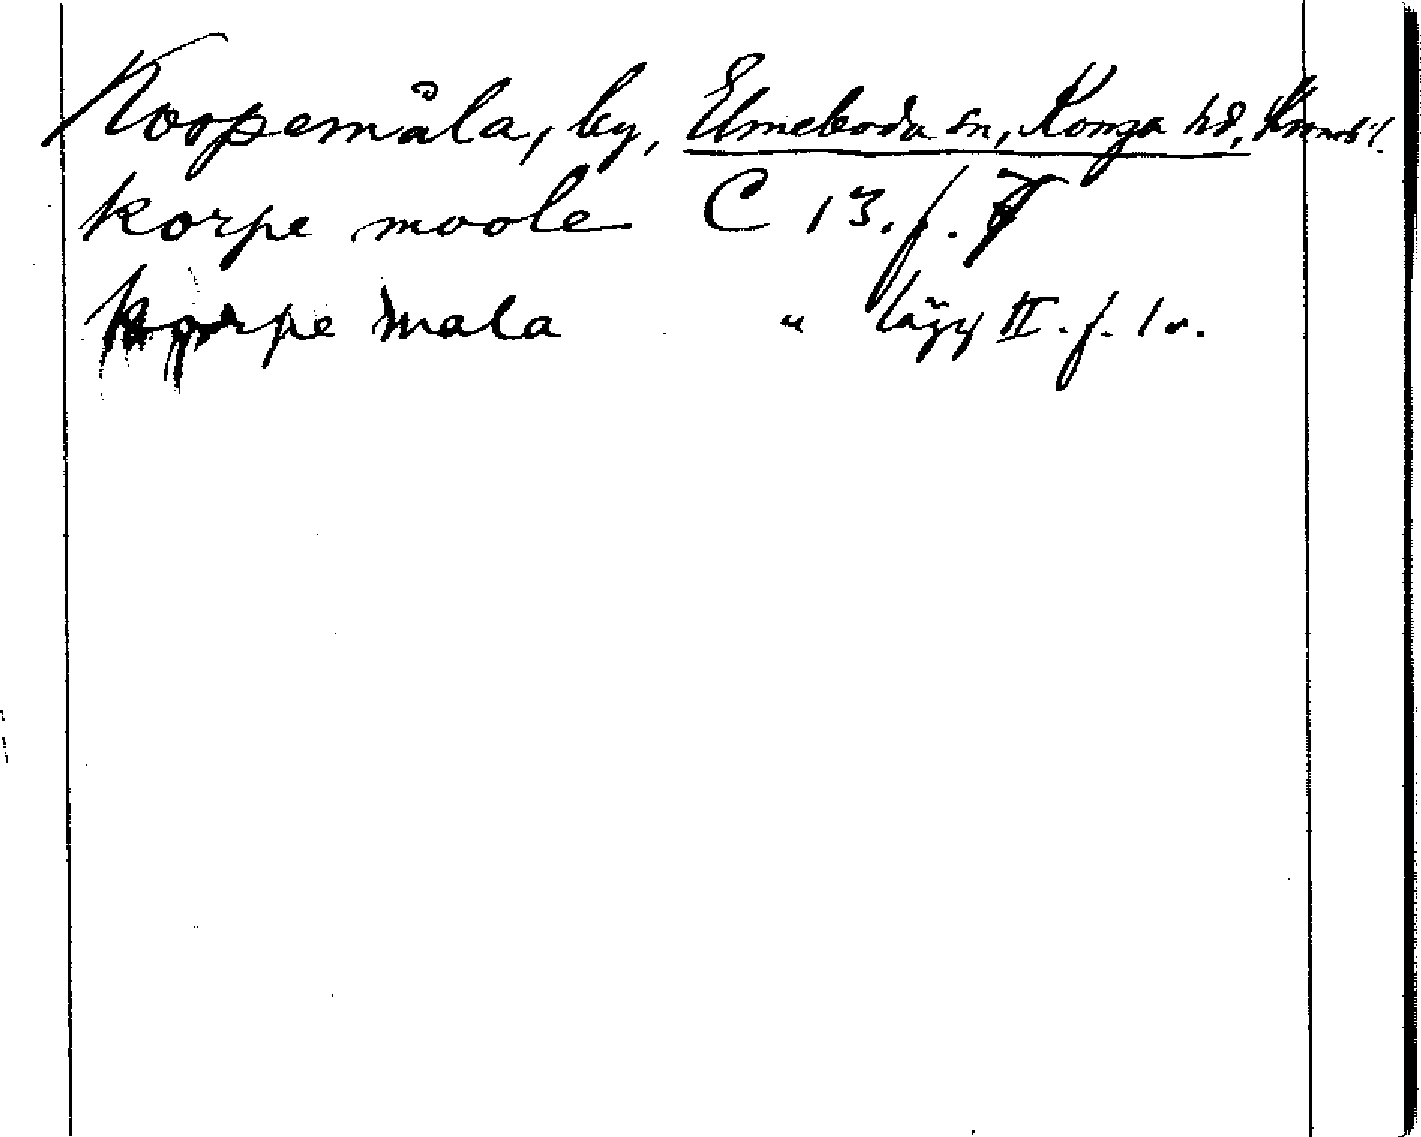 Koopemåla, by, Elmeboda sn, Konga hd, Kronob l.
korpe moole C 13. f.
korpe mala " lägg II. f. 1 v.